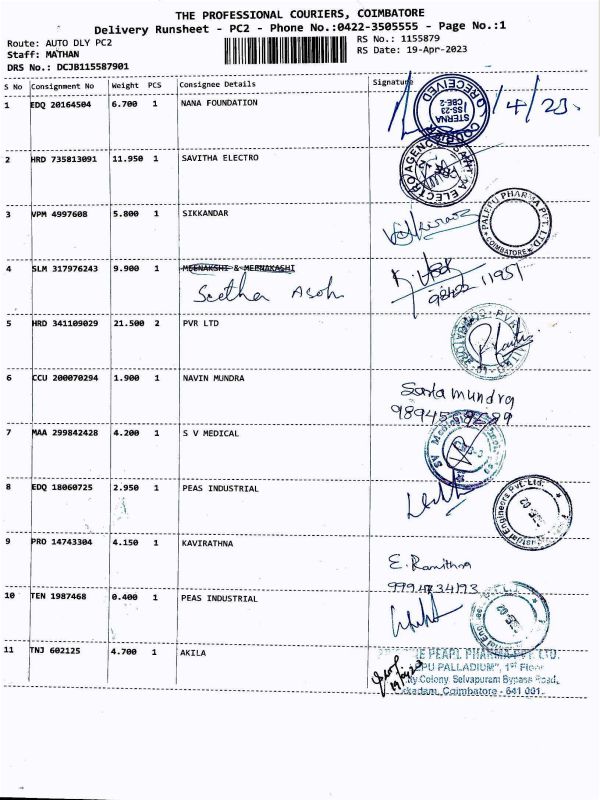 THE PROFESSIONAL COURIERS, COIMBATORE
Delivery Runsheet - PC2 - Phone No.:0422-3505555 - Page No.:1
Route: AUTO DLY PC2
RS No.: 1155879
Staff: MATHAN
RS Date: 19-Apr-2023
DRS No.: DCJB115587901
S No Consignment No Weight PCS Consignee Details Signature
1 EDQ 20164504 6.700 1 NANA FOUNDATION
RECEIVED
STERNA
ISS-23
CBE-2
/4/23.
2 HRD 735813091 11.950 1 SAVITHA ELECTRO
ELECTRO AGENC
3 VPM 4997608 5.800 1 SIKKANDAR
PALEPU PHARMA PVT. LTD.
COIMBATORE
4 SLM 317976243 9.900 1 MEENAKSHI & MEENAKASHI
Seetha Asoh
98422 11951
5 HRD 341109029 21.500 2 PVR LTD
6 CCU 200070294 1.900 1 NAVIN MUNDRA
Sarla mundra
7 MAA 299842428 4.200 1 S V MEDICAL
SV
8 EDQ 18060725 2.950 1 PEAS INDUSTRIAL
Engineers Pvt. Ltd.
9 PRO 14743304 4.150 1 KAVIRATHNA
E. Ramithna
9994734193
10 TEN 1987468 0.400 1 PEAS INDUSTRIAL
11 TNJ 602125 4.700 1 AKILA
PEARL PHARMA PVT. LTD.
PU PALLADIUM", 1st Floor
Colony, Selvapuram Bypass Road,
Coimbatore - 641 001.